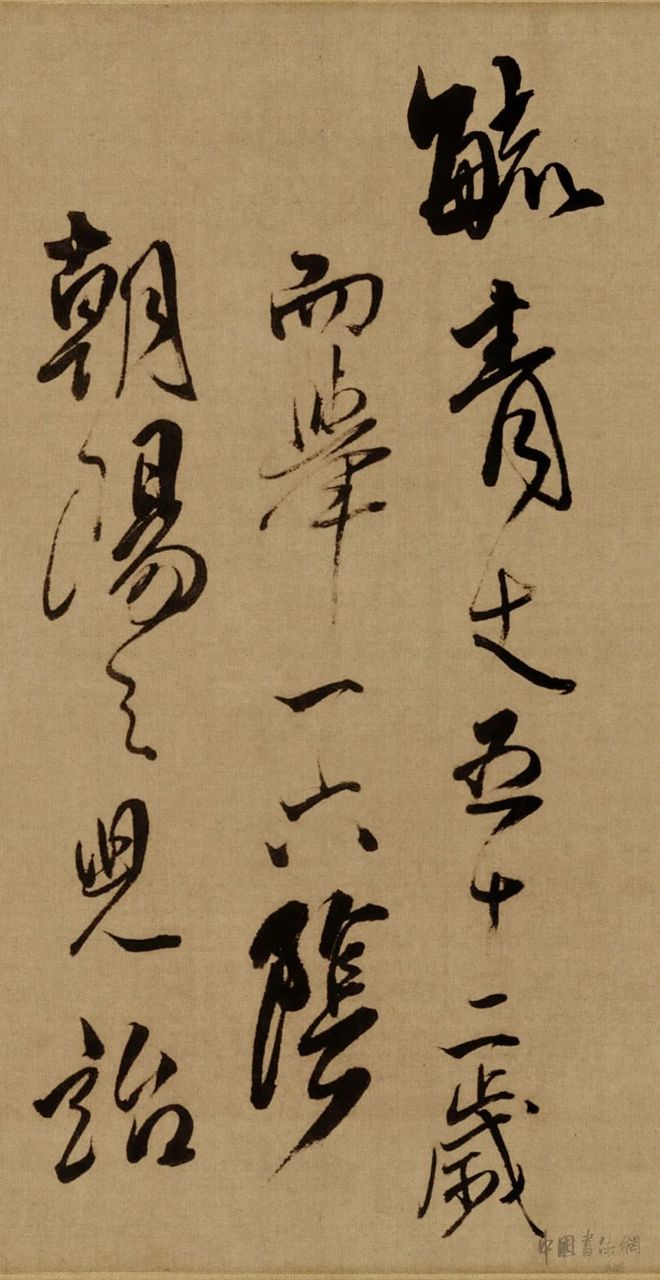 毓青丈五十二歲
而舉一六陰
朝陽之兒詒
中國書法網